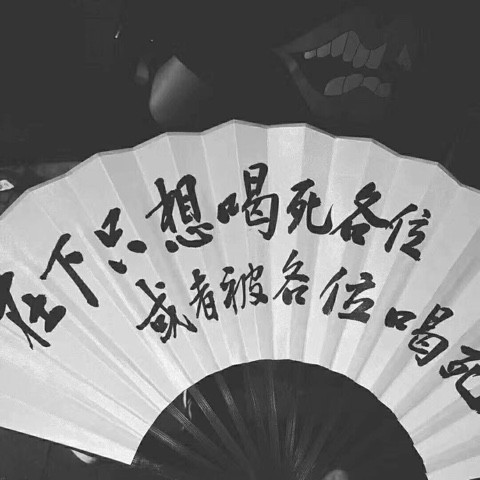 在下只想喝死各位
或者被各位喝死